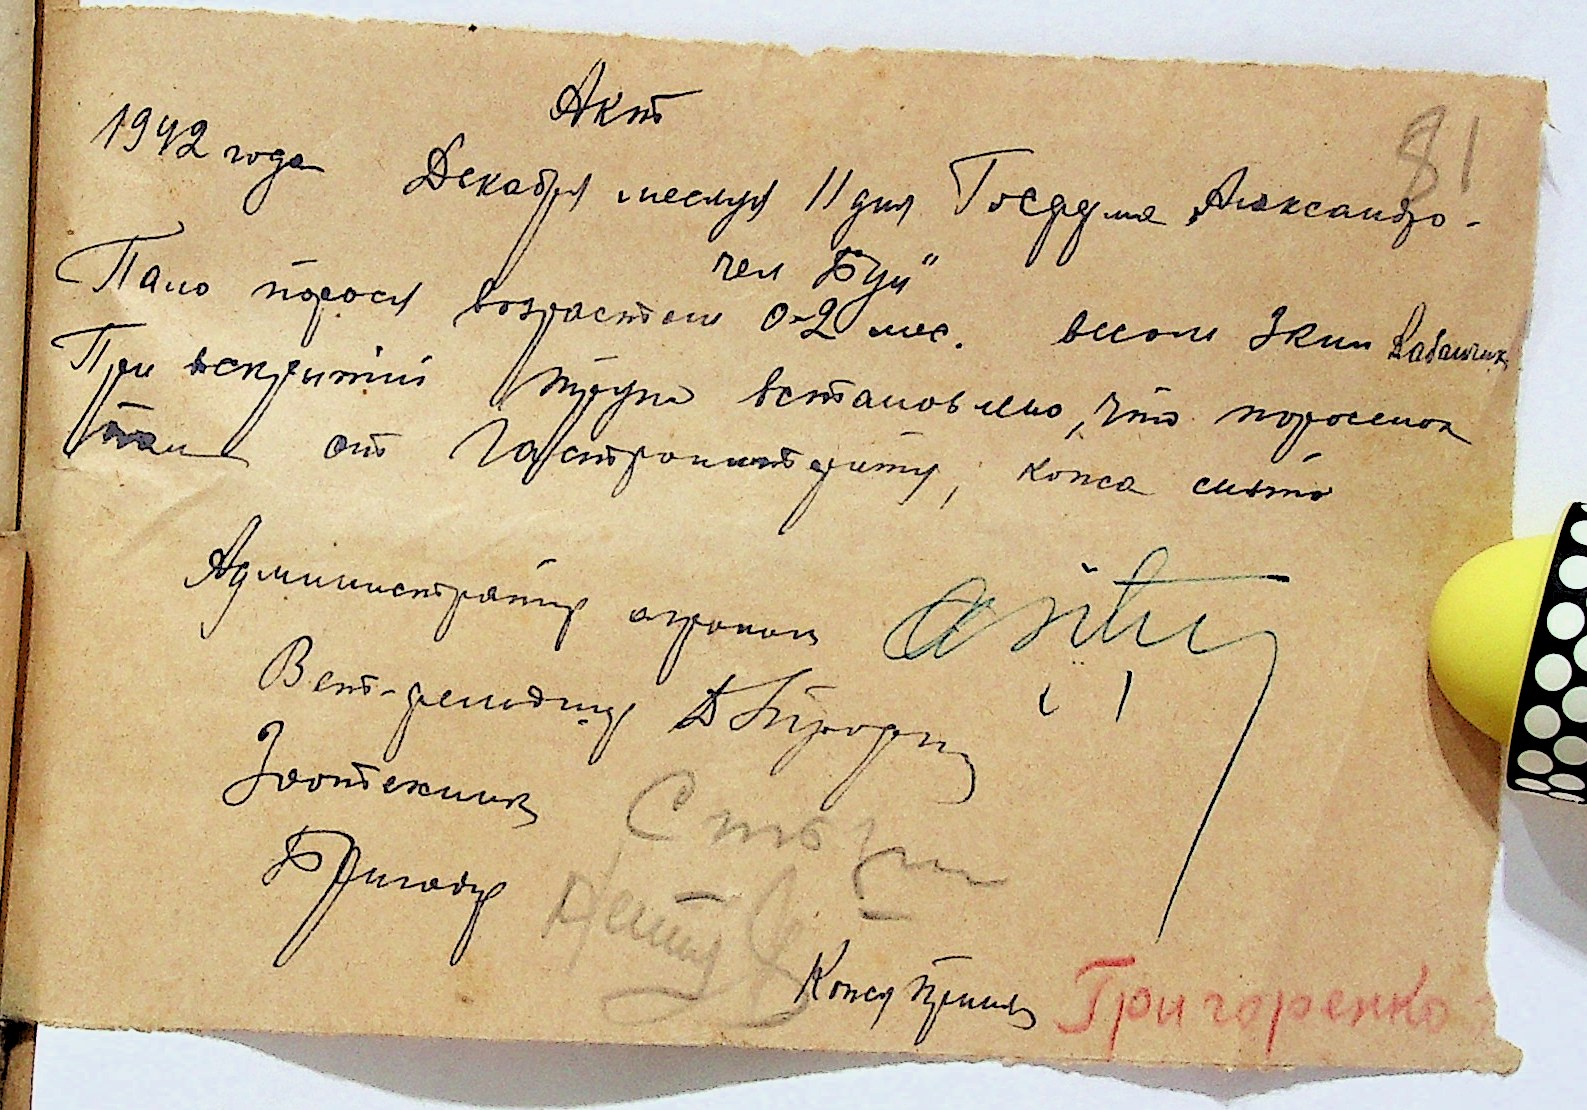 81
Акт
1942 года Декабря месяця 11 дня Госдума Александро-
Пало порося возрастом 0-2 мес. весом 3 кил Кабанчик
При вскрытии трупа встановлено, что поросенок
пал от Гастроинтерити, кожа снята
Администратор агроном
Вет-фельдшер
Зоотехник
Бригадир
Кожу принял Григоренко